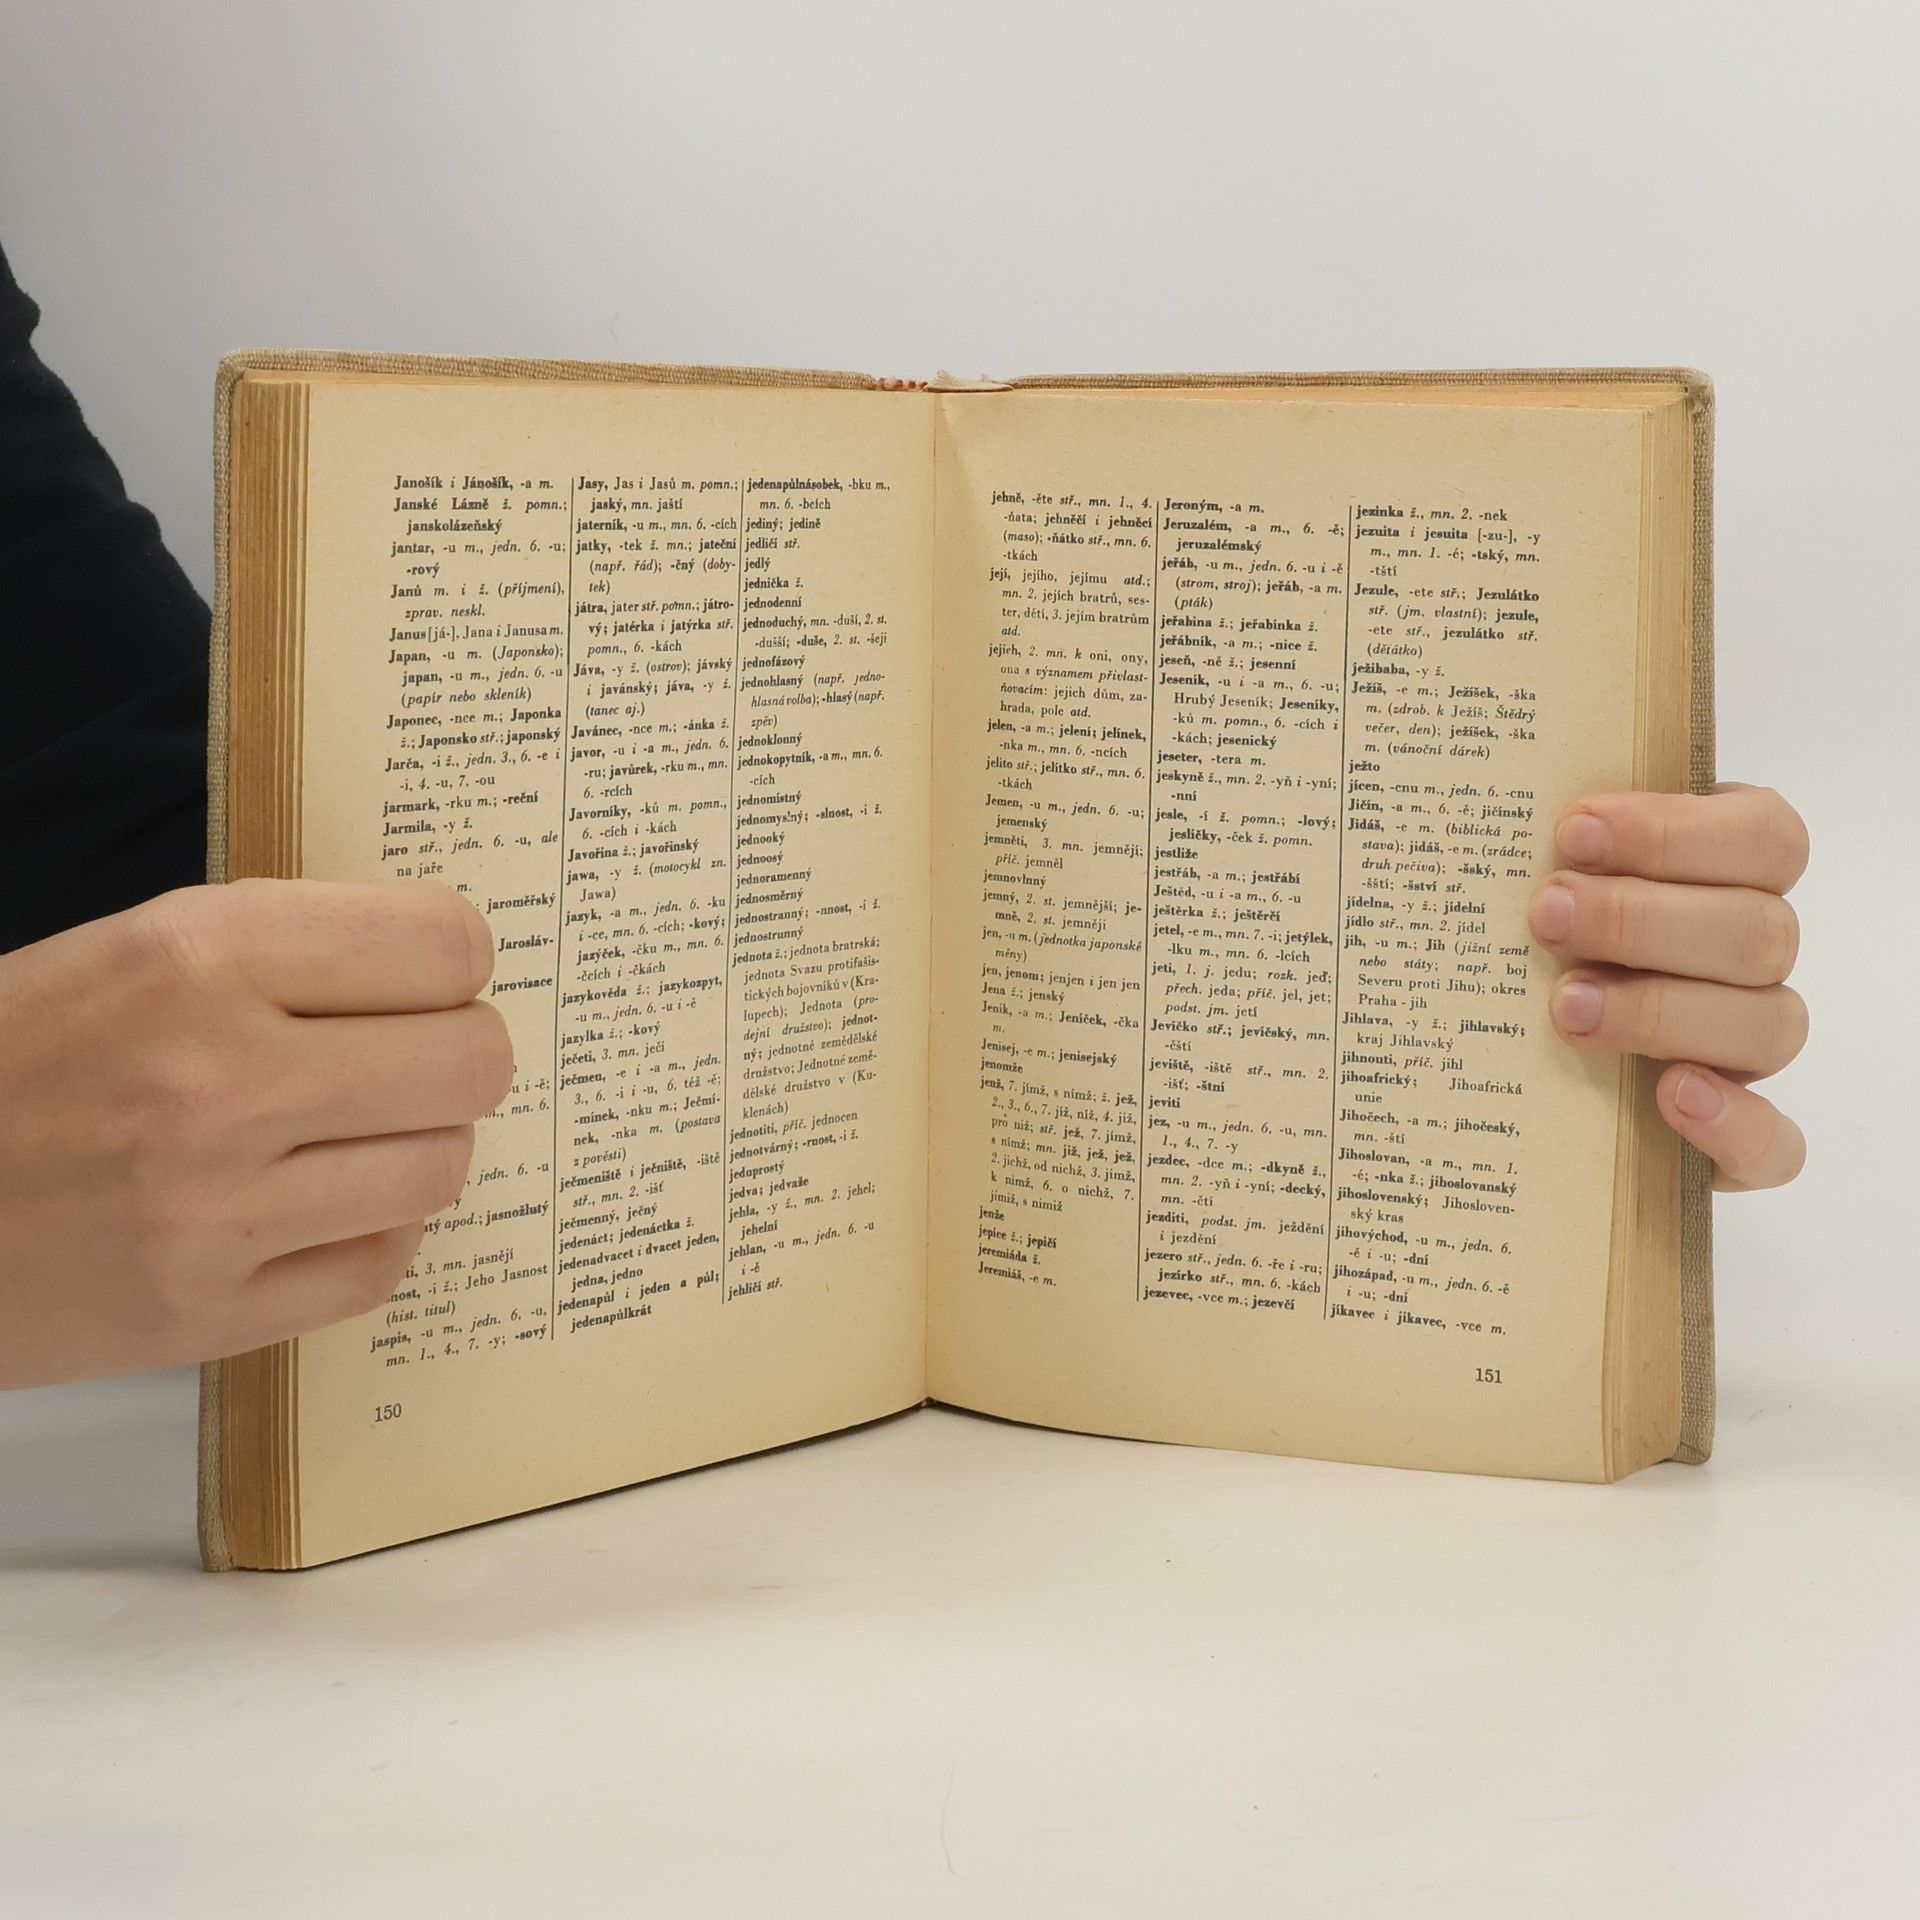 Janošík i Jánošík, -a m.
Janské Lázně ž. pomn.;
janskolázeňský
jantar, -u m., jedn. 6. -u;
-rový
Janů m. i ž. (příjmení),
zprav. neskl.
Janus [já-], Jana i Janusa m.
Japan, -u m. (Japonsko);
japan, -u m., jedn. 6. -u
(papír nebo skleník)
Japonec, -nce m.; Japonka
ž.; Japonsko stř.; japonský
Jarča, -i ž., jedn. 3., 6. -e i
-i, 4. -u, 7. -ou
jarmark, -rku m.; -reční
Jarmila, -y ž.
jaro stř., jedn. 6. -u, ale
na jaře
m.
jaroměřský
Jarosláv-
jarovisace
u i -ě;
mn. 6.
jedn. 6. -u
apod.; jasnožlutý
3. mn. jasnějí
-i ž.; Jeho Jasnost
(hist. titul)
jaspis, -u m., jedn. 6. -u,
mn. 1., 4., 7. -y; -sový
150
Jasy, Jas i Jasů m. pomn.;
jaský, mn. jaští
jaterník, -u m., mn. 6. -cích
jatky, -tek ž. mn.; jateční
(např. řád); -čný (doby-
tek)
játra, jater stř. pomn.; játro-
vý; jatérka i jatýrka stř.
pomn., 6. -kách
Jáva, -y ž. (ostrov); jávský
i javánský; jáva, -y ž.
(tanec aj.)
Javánec, -nce m.; -ánka ž.
javor, -u i -a m., jedn. 6.
-ru; javůrek, -rku m., mn.
6. -rcích
Javorníky, -ků m. pomn.,
6. -cích i -kách
Javořina ž.; javořinský
jawa, -y ž. (motocykl zn.
Jawa)
jazyk, -a m., jedn. 6. -ku
i -ce, mn. 6. -cích; -kový;
jazýček, -čku m., mn. 6.
-čcích i -čkách
jazykověda ž.; jazykozpyt,
-u m., jedn. 6. -u i -ě
jazylka ž.; -kový
ječeti, 3. mn. ječí
ječmen, -e i -a m., jedn.
3., 6. -i i -u, 6. též -ě;
-mínek, -nku m.; Ječmí-
nek, -nka m. (postava
z pověsti)
ječmeniště i ječniště, -iště
stř., mn. 2. -išť
ječmenný, ječný
jedenáct; jedenáctka ž.
jedenadvacet i dvacet jeden,
jedna, jedno
jedenapůl i jeden a půl;
jedenapůlkrát
jedenapůlnásobek, -bku m.,
mn. 6. -bcích
jediný; jedině
jedličí stř.
jedlý
jednička ž.
jednodenní
jednoduchý, mn. -duší, 2. st.
-dušší; -duše, 2. st. -šeji
jednofázový
jednohlasný (např. jedno-
hlasná volba); -hlasý (např.
zpěv)
jednoklonný
jednokopytník, -a m., mn. 6.
-cích
jednomístný
jednomyslný; -slnost, -i ž.
jednooký
jednoosý
jednoramenný
jednosměrný
jednostranný; -nnost, -i ž.
jednostrunný
jednota ž.; jednota bratrská;
jednota Svazu protifašis-
tických bojovníků v (Kra-
lupech); Jednota (pro-
dejní družstvo); jednot-
ný; jednotné zemědělské
družstvo; Jednotné země-
dělské družstvo v (Ku-
klenách)
jednotiti, příč. jednocen
jednotvárný; -rnost, -i ž.
jeduprostý
jedva; jedvaže
jehla, -y ž., mn. 2. jehel;
jehelní
jehlan, -u m., jedn. 6. -u
i -ě
jehličí stř.
jehně, -ěte stř., mn. 1., 4.
-ňata; jehněčí i jehněcí
(maso); -ňátko stř., mn. 6.
-tkách
její, jejího, jejímu atd.;
mn. 2. jejích bratrů, ses-
ter, dětí, 3. jejím bratrům
atd.
jejich, 2. mn. k oni, ony,
ona s významem přivlast-
ňovacím: jejich dům, za-
hrada, pole atd.
jelen, -a m.; jelení; jelínek,
-nka m., mn. 6. -ncích
jelito stř.; jelítko stř., mn. 6.
-tkách
Jemen, -u m., jedn. 6. -u;
jemenský
jemněti, 3. mn. jemnějí;
příč. jemněl
jemnovlnný
jemný, 2. st. jemnější; je-
mně, 2. st. jemněji
jen, -u m. (jednotka japonské
měny)
jen, jenom; jenjen i jen jen
Jena ž.; jenský
Jeník, -a m.; Jeníček, -čka
m.
Jenisej, -e m.; jenisejský
jenomže
jenž, 7. jímž, s nímž; ž. jež,
2., 3., 6., 7. jíž, níž, 4. již,
pro niž; stř. jež, 7. jímž,
s nímž; mn. již, jež, jež,
2. jichž, od nichž, 3. jimž,
k nimž, 6. o nichž, 7.
jimiž, s nimiž
jenže
jepice ž.; jepičí
jeremiáda ž.
Jeremiáš, -e m.
Jeroným, -a m.
Jeruzalém, -a m., 6. -ě;
jeruzalémský
jeřáb, -u m., jedn. 6. -u i -ě
(strom, stroj); jeřáb, -a m.
(pták)
jeřabina ž.; jeřabinka ž.
jeřábník, -a m.; -nice ž.
jeseň, -ně ž.; jesenní
Jeseník, -u i -a m., 6. -u;
Hrubý Jeseník; Jeseníky,
-ků m. pomn., 6. -cích i
-kách; jesenický
jeseter, -tera m.
jeskyně ž., mn. 2. -yň i -yní;
-nní
jesle, -í ž. pomn.; -lový;
jesličky, -ček ž. pomn.
jestliže
jestřáb, -a m.; jestřábí
Ještěd, -u i -a m., 6. -u
ještěrka ž.; ještěrčí
jetel, -e m., mn. 7. -i; jetýlek,
-lku m., mn. 6. -lcích
jeti, 1. j. jedu; rozk. jeď;
přech. jeda; příč. jel, jet;
podst. jm. jetí
Jevíčko stř.; jevíčský, mn.
-čští
jeviště, -iště stř., mn. 2.
-išť; -štní
jeviti
jez, -u m., jedn. 6. -u, mn.
1., 4., 7. -y
jezdec, -dce m.; -dkyně ž.,
mn. 2. -yň i -yní; -decký,
mn. -čtí
jezditi, podst. jm. ježdění
i jezdění
jezero stř., jedn. 6. -ře i -ru;
jezírko stř., mn. 6. -kách
jezevec, -vce m.; jezevčí
jezinka ž., mn. 2. -nek
jezuita i jesuita [-zu-], -y
m., mn. 1. -é; -tský, mn.
-tští
Jezule, -ete stř.; Jezulátko
stř. (jm. vlastní); jezule,
-ete stř., jezulátko stř.
(děťátko)
ježibaba, -y ž.
Ježíš, -e m.; Ježíšek, -ška
m. (zdrob. k Ježíš; Štědrý
večer, den); ježíšek, -ška
m. (vánoční dárek)
ježto
jícen, -cnu m., jedn. 6. -cnu
Jičín, -a m., 6. -ě; jičínský
Jidáš, -e m. (biblická po-
stava); jidáš, -e m. (zrádce;
druh pečiva); -šský, mn.
-šští; -šství stř.
jídelna, -y ž.; jídelní
jídlo stř., mn. 2. jídel
jih, -u m.; Jih (jižní země
nebo státy; např. boj
Severu proti Jihu); okres
Praha - jih
Jihlava, -y ž.; jihlavský;
kraj Jihlavský
jihnouti, příč. jihl
jihoafrický; Jihoafrická
unie
Jihočech, -a m.; jihočeský,
mn. -ští
Jihoslovan, -a m., mn. 1.
-é; -nka ž.; jihoslovanský
jihoslovenský; Jihosloven-
ský kras
jihovýchod, -u m., jedn. 6.
-ě i -u; -dní
jihozápad, -u m., jedn. 6. -ě
i -u; -dní
jikavec i jíkavec, -vce m.
151